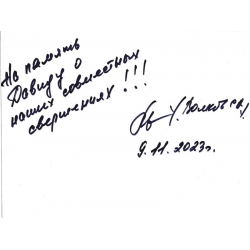 На память
Давиду о
наших совместных
свершениях!!!
9.11.2023г.